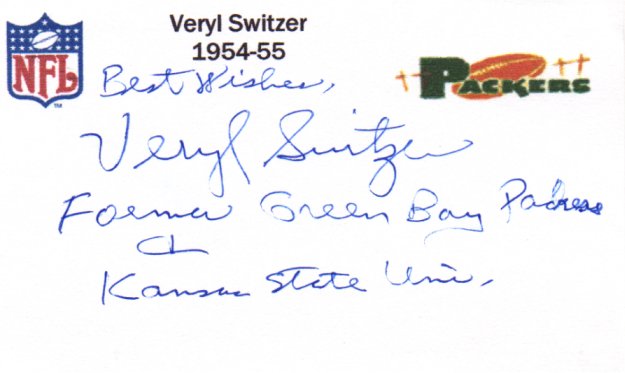 Veryl Switzer
1954-55
NFL
TM
PACKERS
Best Wishes,
Veryl Switzer
Former Green Bay Packers
&
Kansas State Univ.